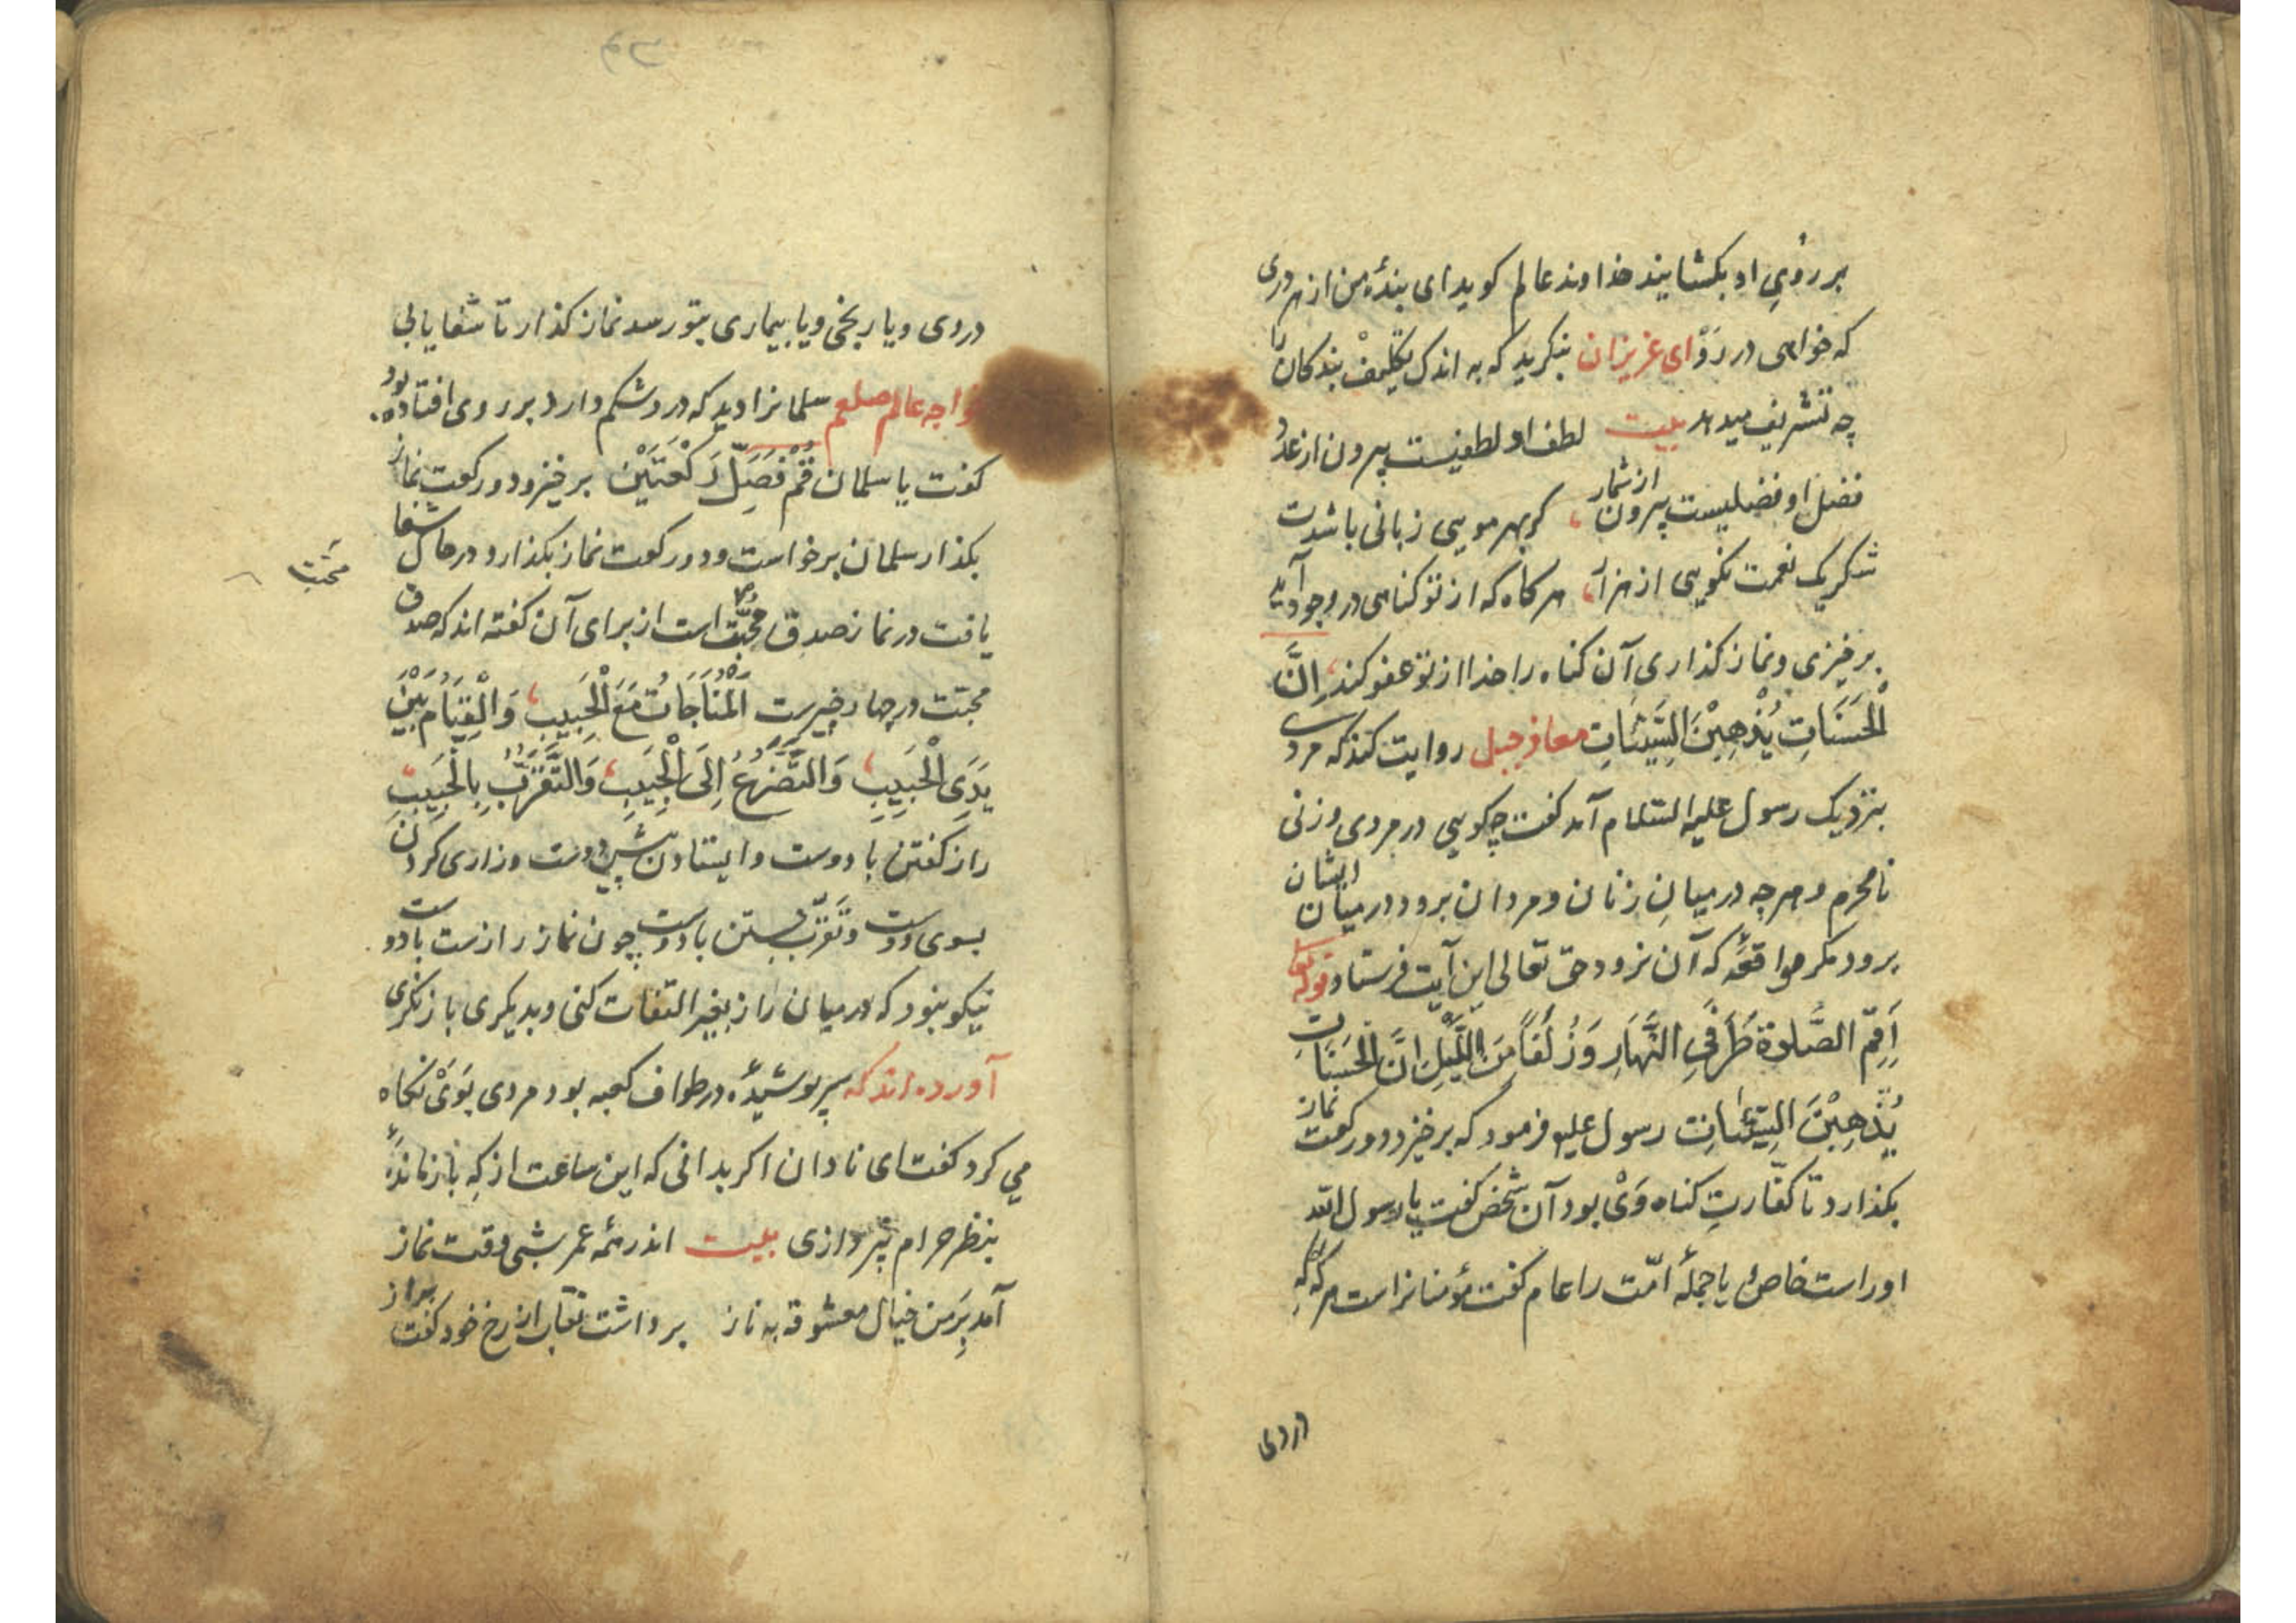 بر رؤیِ او بکشایند خداوند عالم کوید ای بندۀ من از هر دری
که خواهی در رَوْ ای عزیزان بنکرید که به اندک تکلیفْ بندکان را
چه تشریف میدهد بیت لطف او لطفیست بیرون از عدد
فضل او فضلیست بیرون از شمار کر بهر مویی زبانی باشدت
شکر یک نعمت نکویی از هزار هر کاه که از تو کناهی در وجود آید
برخیزی و نماز کذاری آن کناه را خدا از تو عفو کند اِنَّ
الْحَسَنَاتِ یُذْهِبْنَ السَّیِّئَاتِ معاذ جبل روایت کند که مردی
بنزدیک رسول علیه السّلام آمد کفت چکویی در مردی و زنی
نامحرم و هرچه در میانِ زنان و مردان برود در میان ایشان
برود مکر مواقعۀ که آن نرود حق تعالی این آیت فرستاد قوله تعا
اَقِمِ الصَّلوۃَ طَرَفَیِ النَّهَارِ وَ زُلَفاً مِنَ اللَّیْلِ اِنَّ الْحَسَنَاتِ
یُذْهِبْنَ السَّیِّئَاتِ رسول علیه فرمود که برخیزد و دو رکعت نماز
بکذارد تا کفّارتِ کناه وَیْ بود آن شخص کفت یا رسول الله
او راست خاص یا جملۀ امّت را عام کفت مؤمنانراست هر که را که
دردی
دردی و یا رنجی و یا بیماری بتو رسد نماز کذار تا شفا یابی
خواجه عالم صلعم سلمانرا دید که درد شکم دارد بر روی افتاده بود
کفت یا سلمان قُمْ فَصَلِّ رَکْعَتَیْنِ برخیز و دو رکعت نماز
بکذار سلمان برخاست و دو رکعت نماز بکذارد در حال شفا
محبّت
یافت در نماز صدق محبّت است از برای آن کفته اند که صدق
محبّت در چهار چیزست اَلْمُنَاجَاتُ مَعَ الْحَبِیبِ وَالْقِیَامُ بَیْنَ
یَدَیِ الْحَبِیبِ وَالتَّضَرُّعُ اِلَی الْحَبِیبِ وَالتَّقَرُّبُ بِالْحَبِیبِ
راز کفتن با دوست و ایستادن پیش دوست و زاری کردن
بسوی دوست و تَقَرُّب جستن با دوست چون نماز رازست با دوست
نیکو نبود که در میان راز بغیر التفات کنی و بدیکری باز نکری
آورده اند که سر پوشیدۀ در طواف کعبه بود مردی بَوَیْ نکاه
می کرد کفت ای نادان اکر بدانی که این ساعت از کِه باز ماندۀ
بنظر حرام نپردازی بیت اندر همه عمر شبی وقت نماز
آمد بَرِ من خیال معشوقه به ناز برداشت نقاب از رخ خود کفت براز